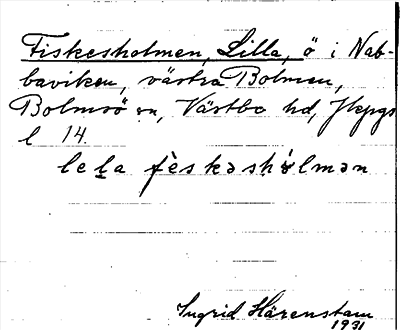 Fiskesholmen, Lilla, ö i Nab-
baviken, västra Bolmen,
Bolmsö sn, Västbo hd, Jkpgs
l 14.
lela fèskəshʹɷlmən
Ingrid Härenstam
1931